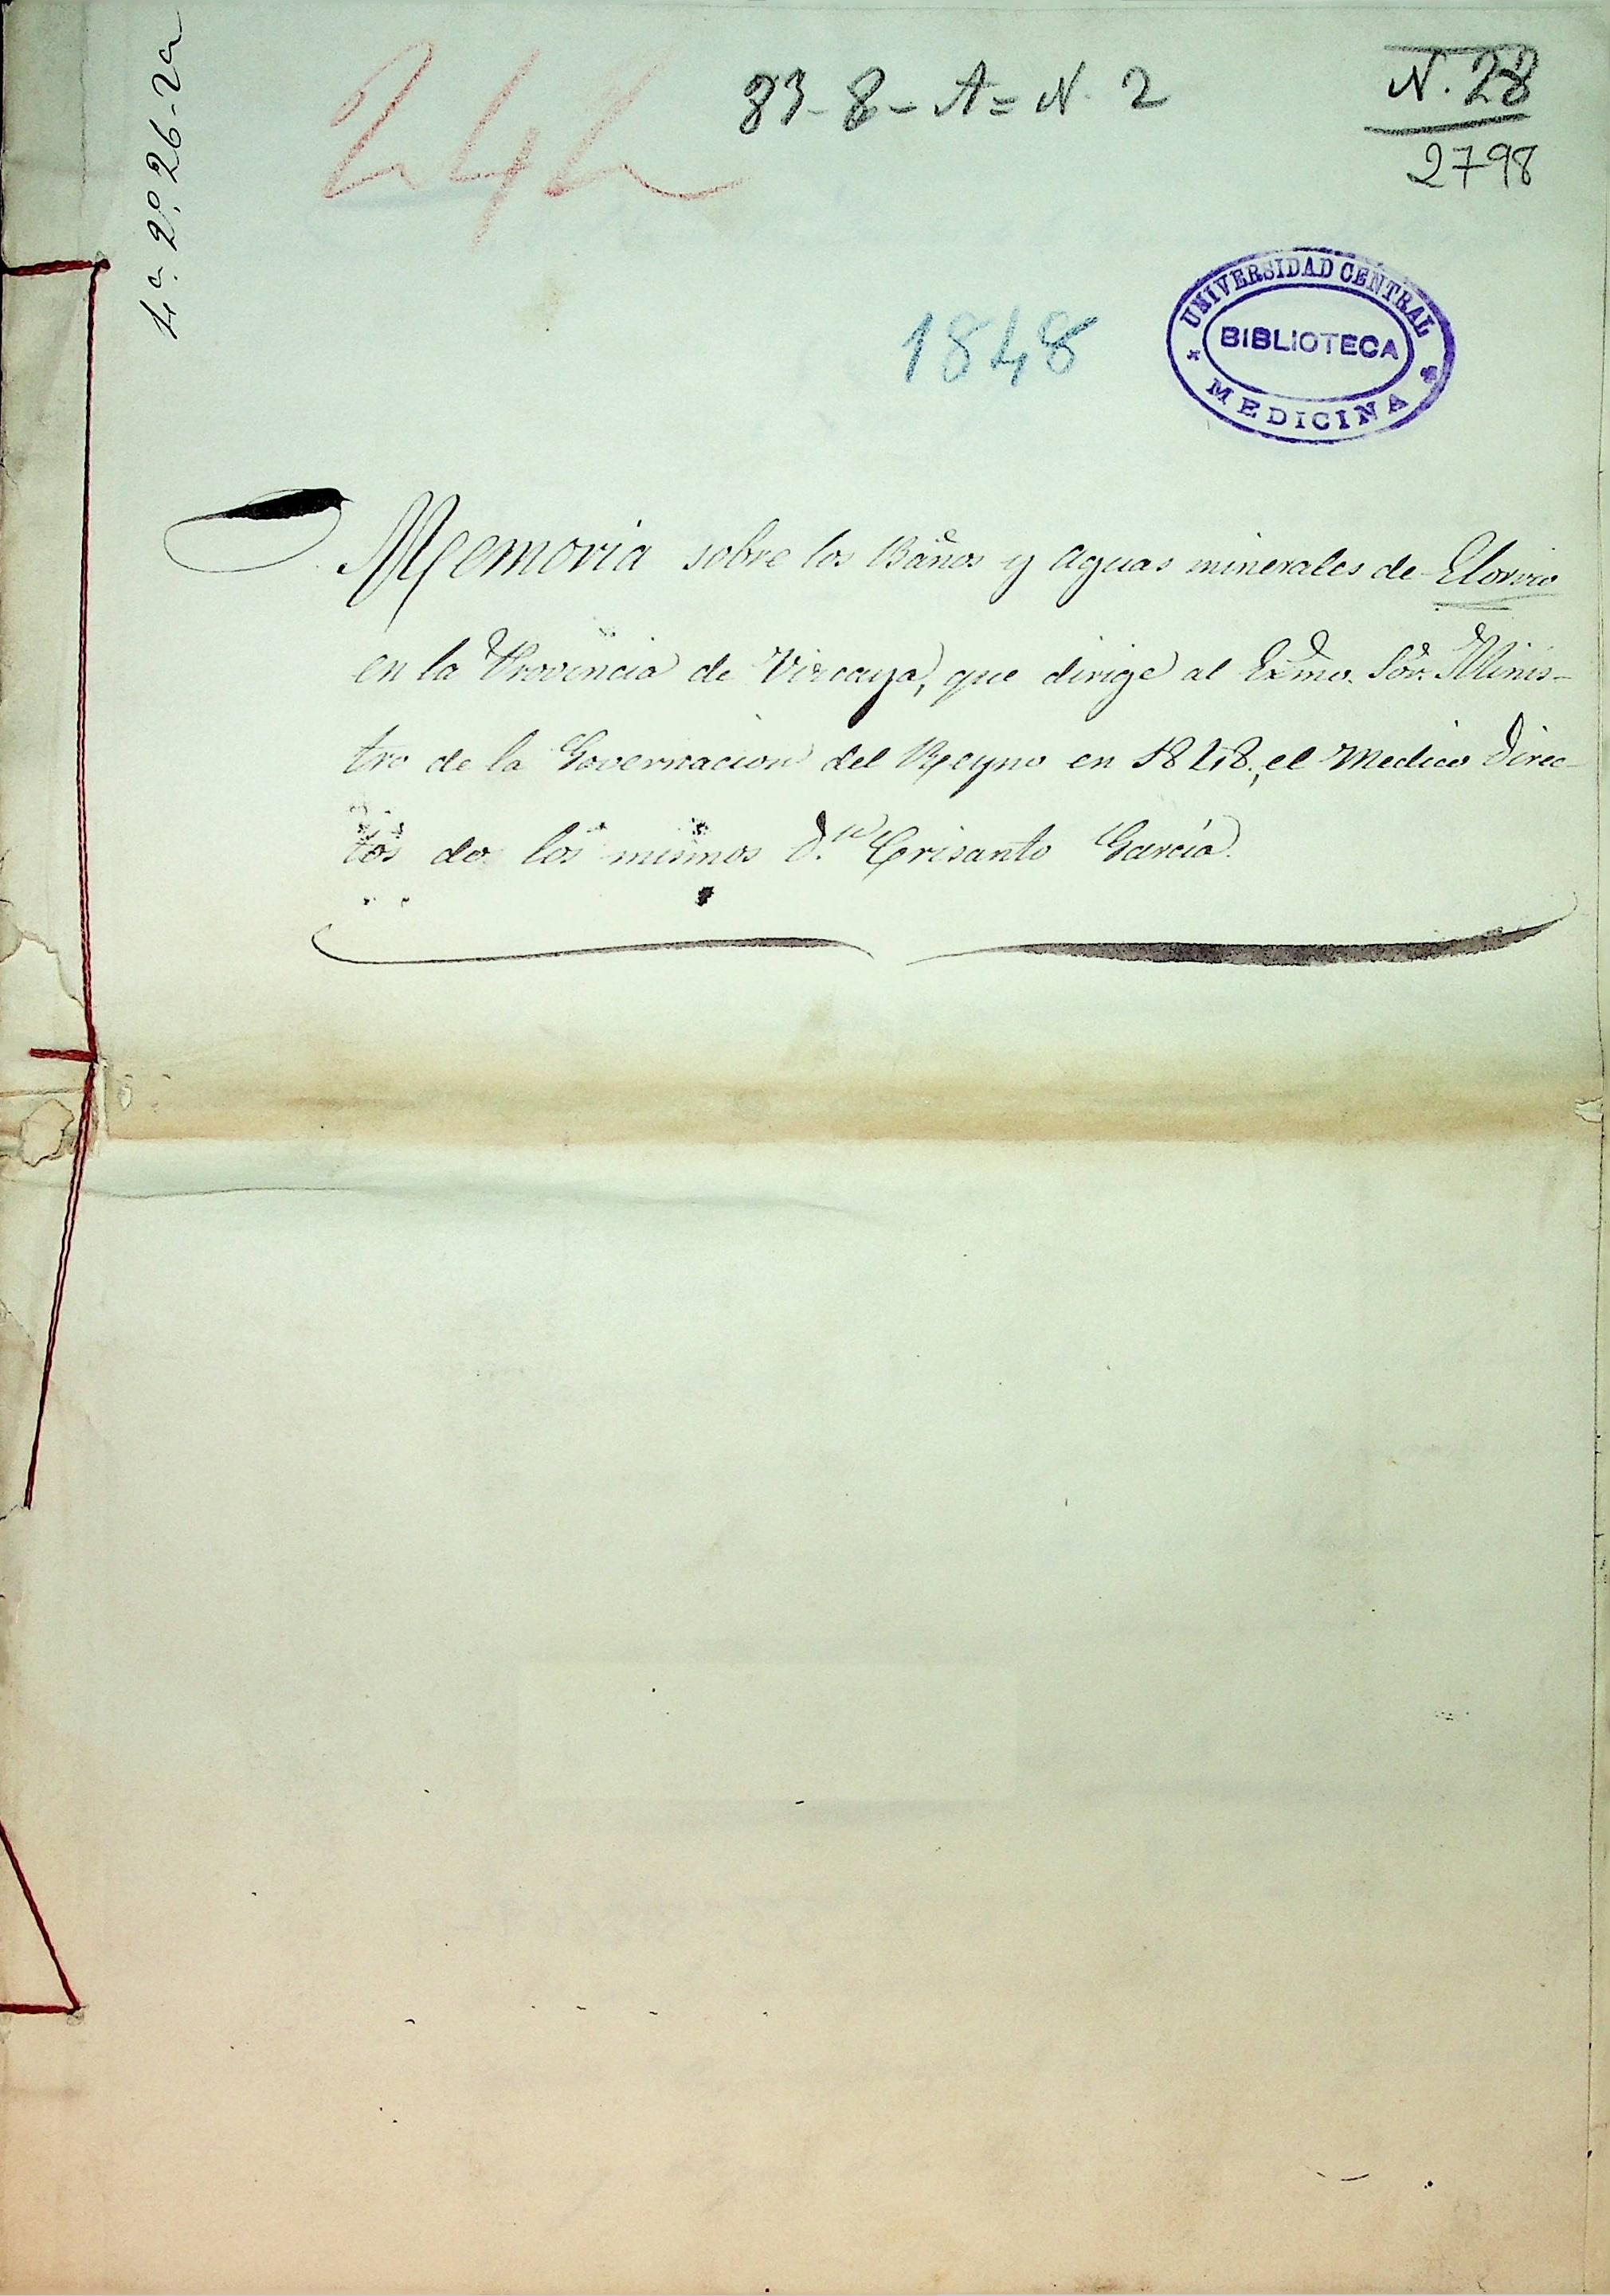 4ª 2º 26-2a
242
83-8-A=N. 2
N. 28
2798
1848
UNIVERSIDAD CENTRAL
BIBLIOTECA
MEDICINA
Memoria sobre los Baños y Aguas minerales de Elorrio
en la Provincia de Vizcaya, que dirige al Exmo. Sor. Minis-
tro de la Governacion del Reyno en 1848, el Medico Direc-
tor de los mismos D.n Crisanto García.